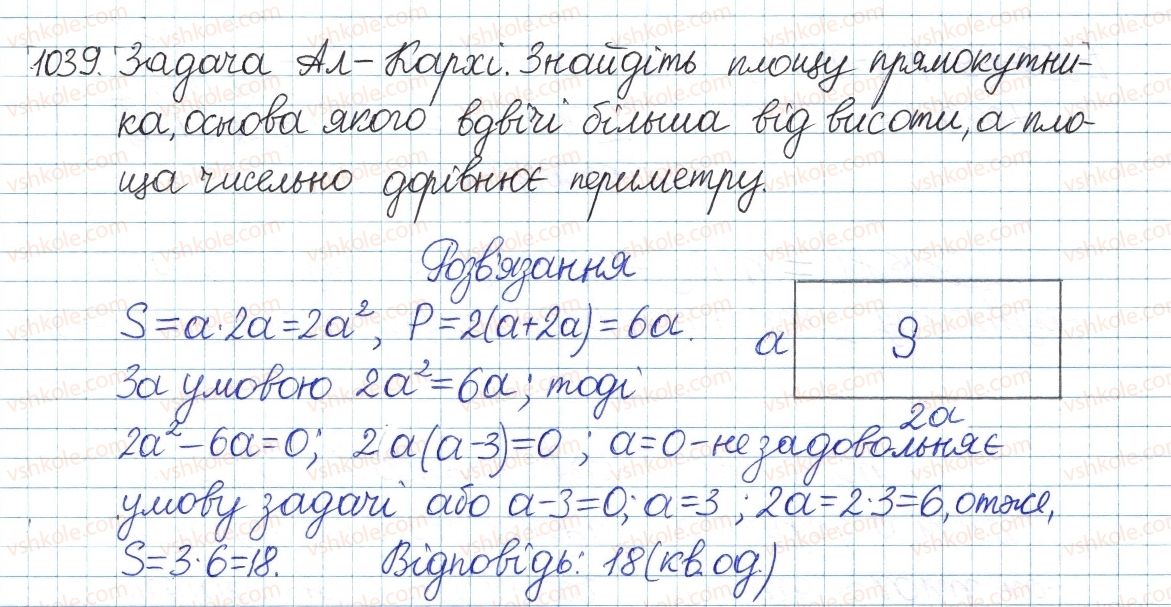 1039. Задача Ал-Кархі. Знайдіть площу прямокутни-
ка, основа якого вдвічі більша від висоти, а пло-
ща чисельно дорівнює периметру.
Розв'язання
S=a·2a=2a², P=2(a+2a)=6a.
a S
За умовою 2a²=6a; тоді
2a
2a²-6a=0; 2a(a-3)=0; a=0-не задовольняє
умову задачі або a-3=0; a=3; 2a=2·3=6, отже,
S=3·6=18. Відповідь: 18(кв.од.)